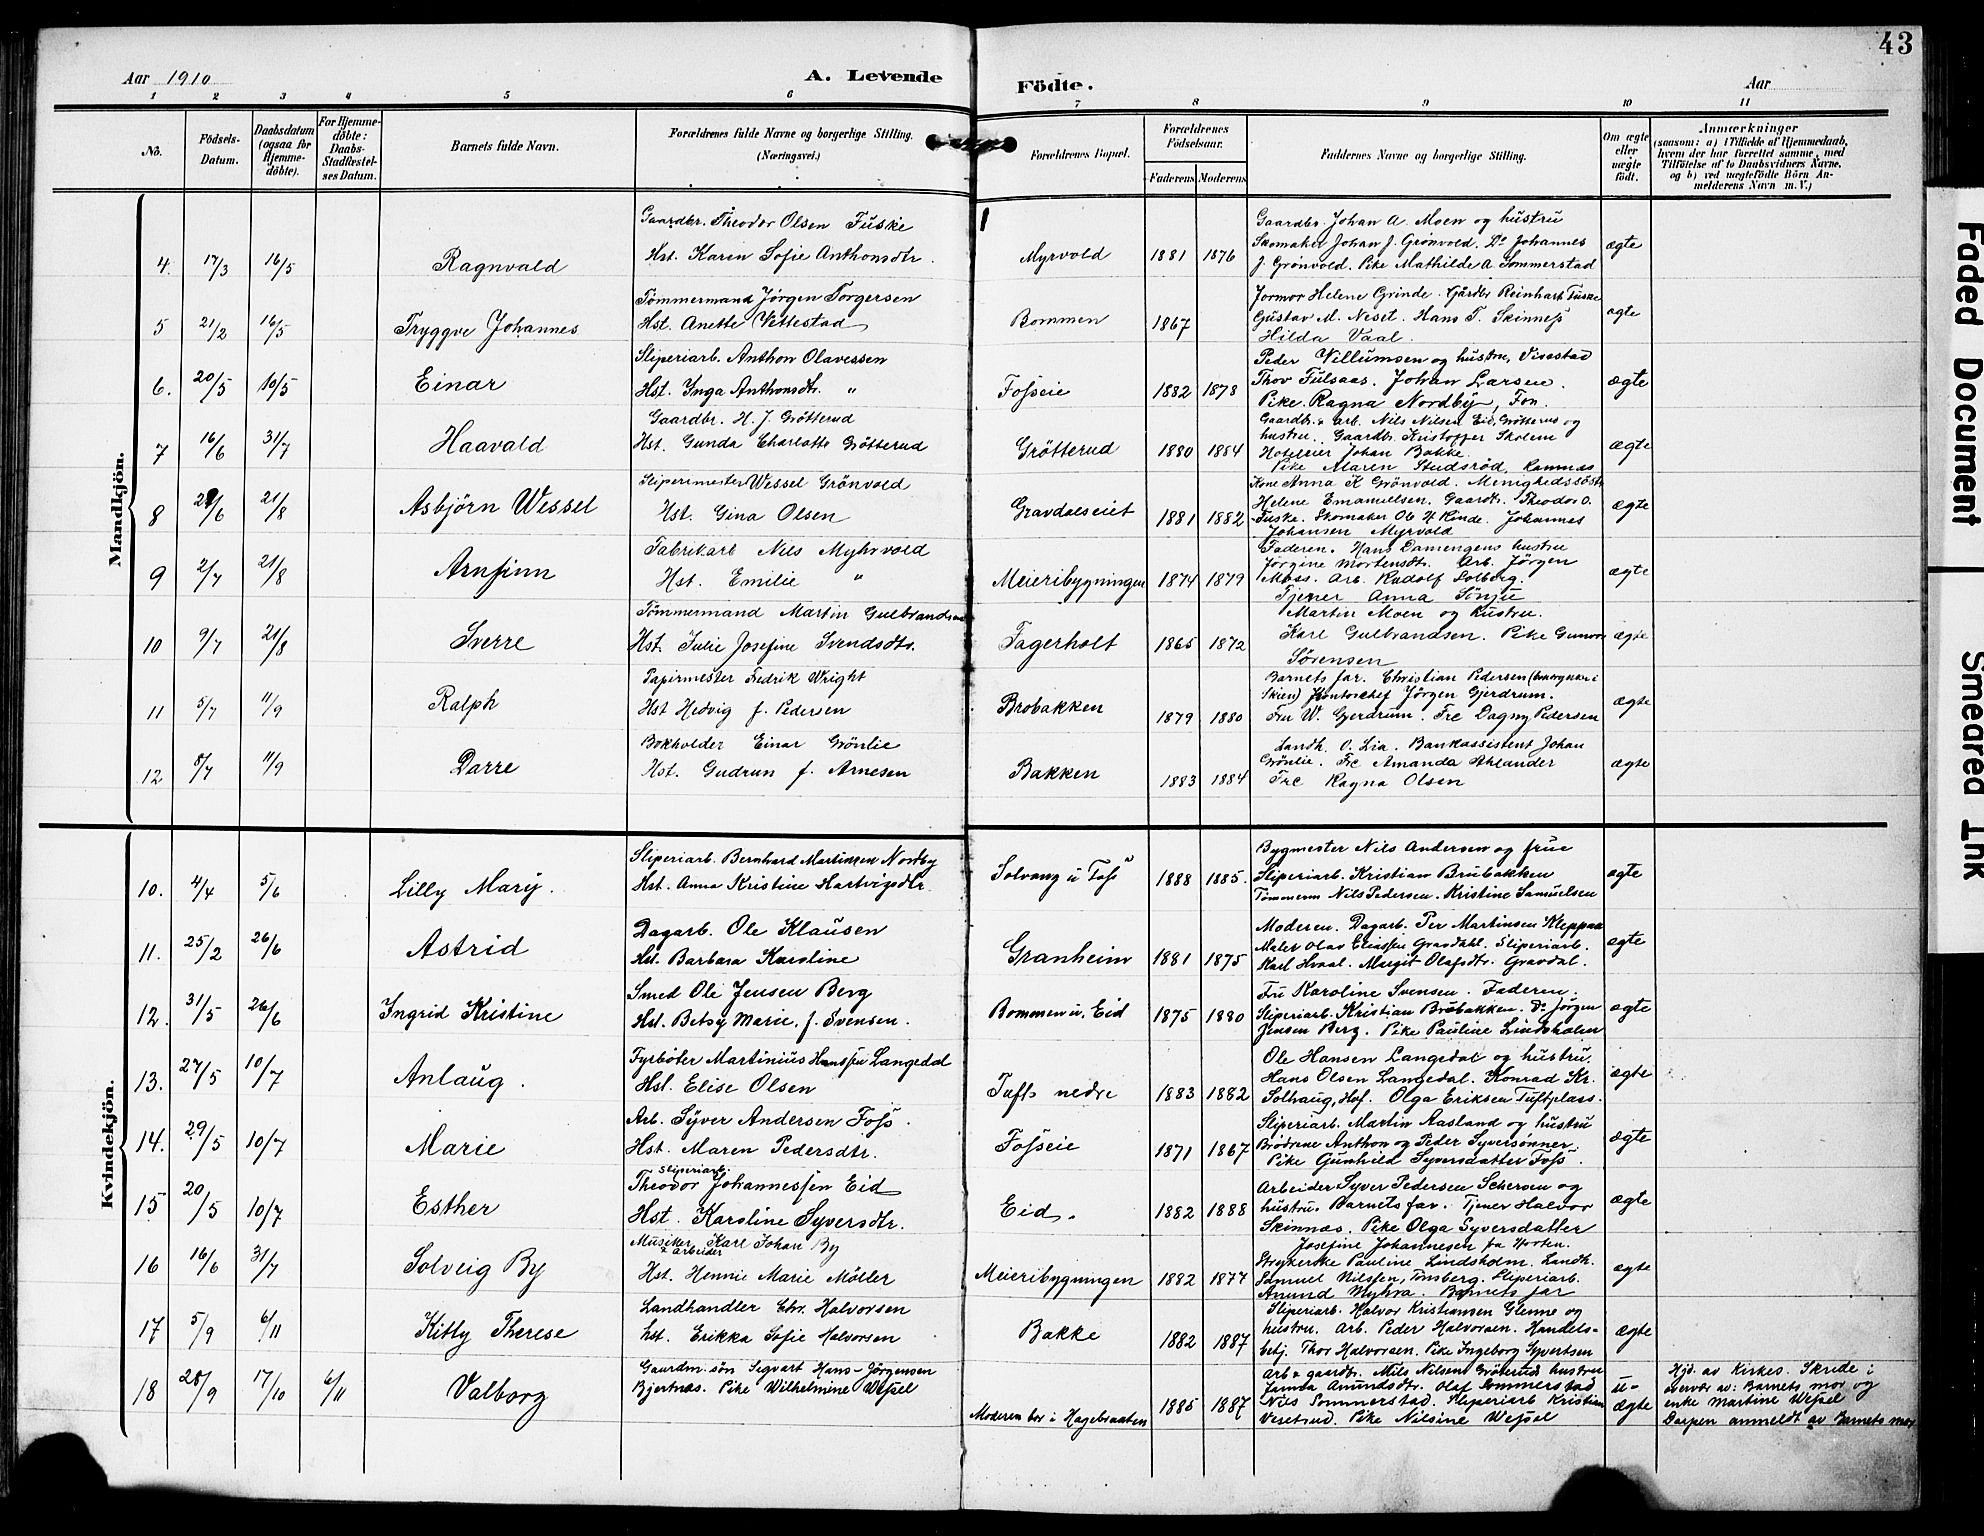 43
Aar 1910
A. Levende Födte.
Aar
1 2 3 4 5 6 7 8 9 10 11
No.
Födsels-Datum.
Daabsdatum (ogsaa for Hjemme-döbte).
For Hjemme-döbte: Daabs-Stadfæstel-ses Datum.
Barnets fulde Navn.
Forældrenes fulde Navne og borgerlige Stilling. (Næringsvei.)
Forældrenes Bopæl.
Forældrenes Födselsaar.
Faderens Moderens
Faddernes Navne og borgerlige Stilling.
Om ægte eller uægte födt.
Anmærkninger
(saasom: a) i Tilfælde af Hjemmedaab, hvem der har forrettet samme, med Tilföielse af to Daabsvidners Navne, og b) ved uægtefödte Börn An-melderens Navn m. V.)
Mandkjön.
4. 17/3 16/5 Ragnvald
Gaardbr. Theodor Olsen Fuske
Hst. Karin Sofie Anthonsdtr.
Myrvold 1881 1876
Gaardbr. Johan A Moen og hustru
Skomaker Johan J. Grönvold. Do Johannes
J. Grönvold. Pike Mathilde A. Sommerstad
ægte
5 21/2 16/5 Tryggve Johannes
Tömmermand Jörgen Torgersen
Hst. Anette Vettestad
Bommen 1867
Jormor Helene Grinde. Gårdbr Reinhart Fuske
Gustav M. Neset. Hans T. Skinnes
Hilda Vaal.
ægte
6. 20/5 10/5 Einar
Sliperiarb. Anthon Olavessen
Hst. Inga Anthonsdtr. "
Fosseie 1882 1878
Peder Villumsen og hustru, Vivestad
Thov Fulsaas. Johan Larsen.
Pike. Ragna Nordby, Fon.
ægte
7 16/6 31/7 Haavald
Gaardbr. H. J. Grötterud
Hst. Gunda Charlotte Grötterud
Grötterud 1880 1884
Gaardbr. & arb. Nils Nilsen Eid, Grötterud og
hustru. Gaardbr. Kristoffer Skolem
Hoteleier Johan Bakke.
Pike Maren Studsröd, Ramnas
ægte
8 /6 21/8 Asbjörn Wessel
Sliperimester Wessel Grönvold
Hst. Gina Olsen
Gravdalseiet 1881 1882
Kone Anna K Grönvold. Menighedssöst.
Helene Emanuelsen. Gaardbr. Theodor O.
Fuske. Skomaker Ole H. Rinde. Johannes
Johansen Myrvold
ægte
9 2/7 21/8 Arnfinn
Fabrikarb Nils Myhrvold
Hst. Emilie "
Meieribygningen 1874 1879
Faderen. Hans Damengens hustru
Jörgine Mortensdtr. Arb. Jörgen
Moss. Arb. Rudolf Solberg.
Tjener Anna Sönju
ægte
10 9/7 21/8 Sverre
Tömmermand Martin Gulbrandsen
Hst. Julie Josefine Svendsdtr.
Fagerholt 1865 1872
Martin Moen og hustru.
Karl Gulbrandsen. Pike Gunvor
Sörensen
ægte
11 5/7 11/9 Ralph
Papirmester Fredrik Wright
Hst Hedvig f. Pedersen
Brobakken 1879 1880
Barnets far. Christian Pedersen
Skien) Kontorchef Jörgen Gjerdrum.
Fru W. Gjerdrum. Frc Dagny Pedersen
ægte
12 5/7 11/9 Darre
Bokholder Einar Grönlie
Hst. Gudrun f. Arnesen
Bakken 1883 1884
Landh. O. Lia. Bankassistent Johan
Grönlie. Frc Amanda Ahlander
Frc Ragna Olsen
ægte
Kvindekjön.
10. 4/4 5/6 Lilly Mary.
Sliperiarb. Bernhard Martinsen Nordby
Hst. Anna Kristine Hartvigsdtr.
Solvang u Foss 1888 1885.
Bygmester Nils Andersen og frue
Sliperiarb. Kristian Brubakken
Tömmerm Nils Pedersen. Kristine Samuelsen
ægte
11. 25/2 26/6 Astrid
Dagarb. Ole Klausen
Hst. Barbara Karoline
Granheim 1881 1875
Moderen. Dagarb. Per Martinsen Kleppan
Maler Olav Eliassen Gravdahl. Sliperiarb.
Karl Hvaal. Margit Olafsdtr. Gravdal.
ægte
12. 31/5 26/6 Ingrid Kristine
Smed Ole Jensen Berg
Hst. Betsy Marie, f. Svensen.
Bommen u. Eid 1875 1880
Fru Karoline Svensen. Faderen.
Sliperiarb. Kristian Brobakken. Do Jörgen
Jensen Berg. Pike Pauline Lindsholm
ægte
13. 27/5 10/7 Anlaug.
Fyrböter Martinius Hanssen Langedal
Hst. Elise Olsen
Tufts nedre 1883 1882
Ole Hansen Langedal og hustru.
Hans Olsen Langedal. Konrad Kr.
Solhaug, Hof. Olga Eriksen Tuftplass.
ægte
14. 29/5 10/7 Marie
Arb. Syver Andersen Foss.
Hst. Maren Pedersdtr.
Fosseie 1871 1867
Sliperiarb. Martin Aasland og hustru
Brödrene Anthon og Peder Syversönner
Pike Gunhild Syversdatter Foss.
ægte
15 20/5 10/7 Esther
Sliperiarb.
Theodor Johannessen Eid
Hst. Karoline Syversdtr.
Eid. 1882 1888
Arbeider Syver Pedersen Schersen og
hustru. Barnets far. Tjener Halvor
Skinnes. Pike Olga Syversdatter
ægte
16 16/6 31/7 Solveig By
Musiker & arbeider Karl Johan By
Hst. Hennie Marie Möller
Meieribygningen 1882 1877
Josefine Johannesen fra Horten.
Strykerske Pauline Lindsholm. Landh.
Samuel Nilssen, Tönsberg. Sliperiarb.
Amund Myhra. Barnets far
ægte
17 5/9 6/11 Kitty Therese
Landhandler Chr. Halvorsen
hst. Erikka Sofie Halvorsen
Bakke 1882 1887
Sliperiarb. Halvor Kristiansen Glenne og
hustru. Arb. Peder Halvorsen. Handels-
betj. Thor Halvorsen. Pike Ingeborg Syvertsen
ægte
18 28/9 17/10 6/11 Valborg
Gaardm. sön Segvart Hans-Jörgensen
Bjertnæs. Pike Wilhelmine Wessel
Moderen bor i Hagebraaten 1885 1887
Arb & gaardbr. Nils Nilsen Gröterud hustru
Amundsdtr. Olaf Sommerstad
Nils Sommerstad. Sliperiarb Kristian
Veretsud. Pike Nilsine Wessel
u-ægte
Hjd. av Kirkes. Skrede i
overvær av: Barnets mor og
enke Martine Wessel
Daapen anmeldt av Barnets mor
Faded Document
Smeared Ink